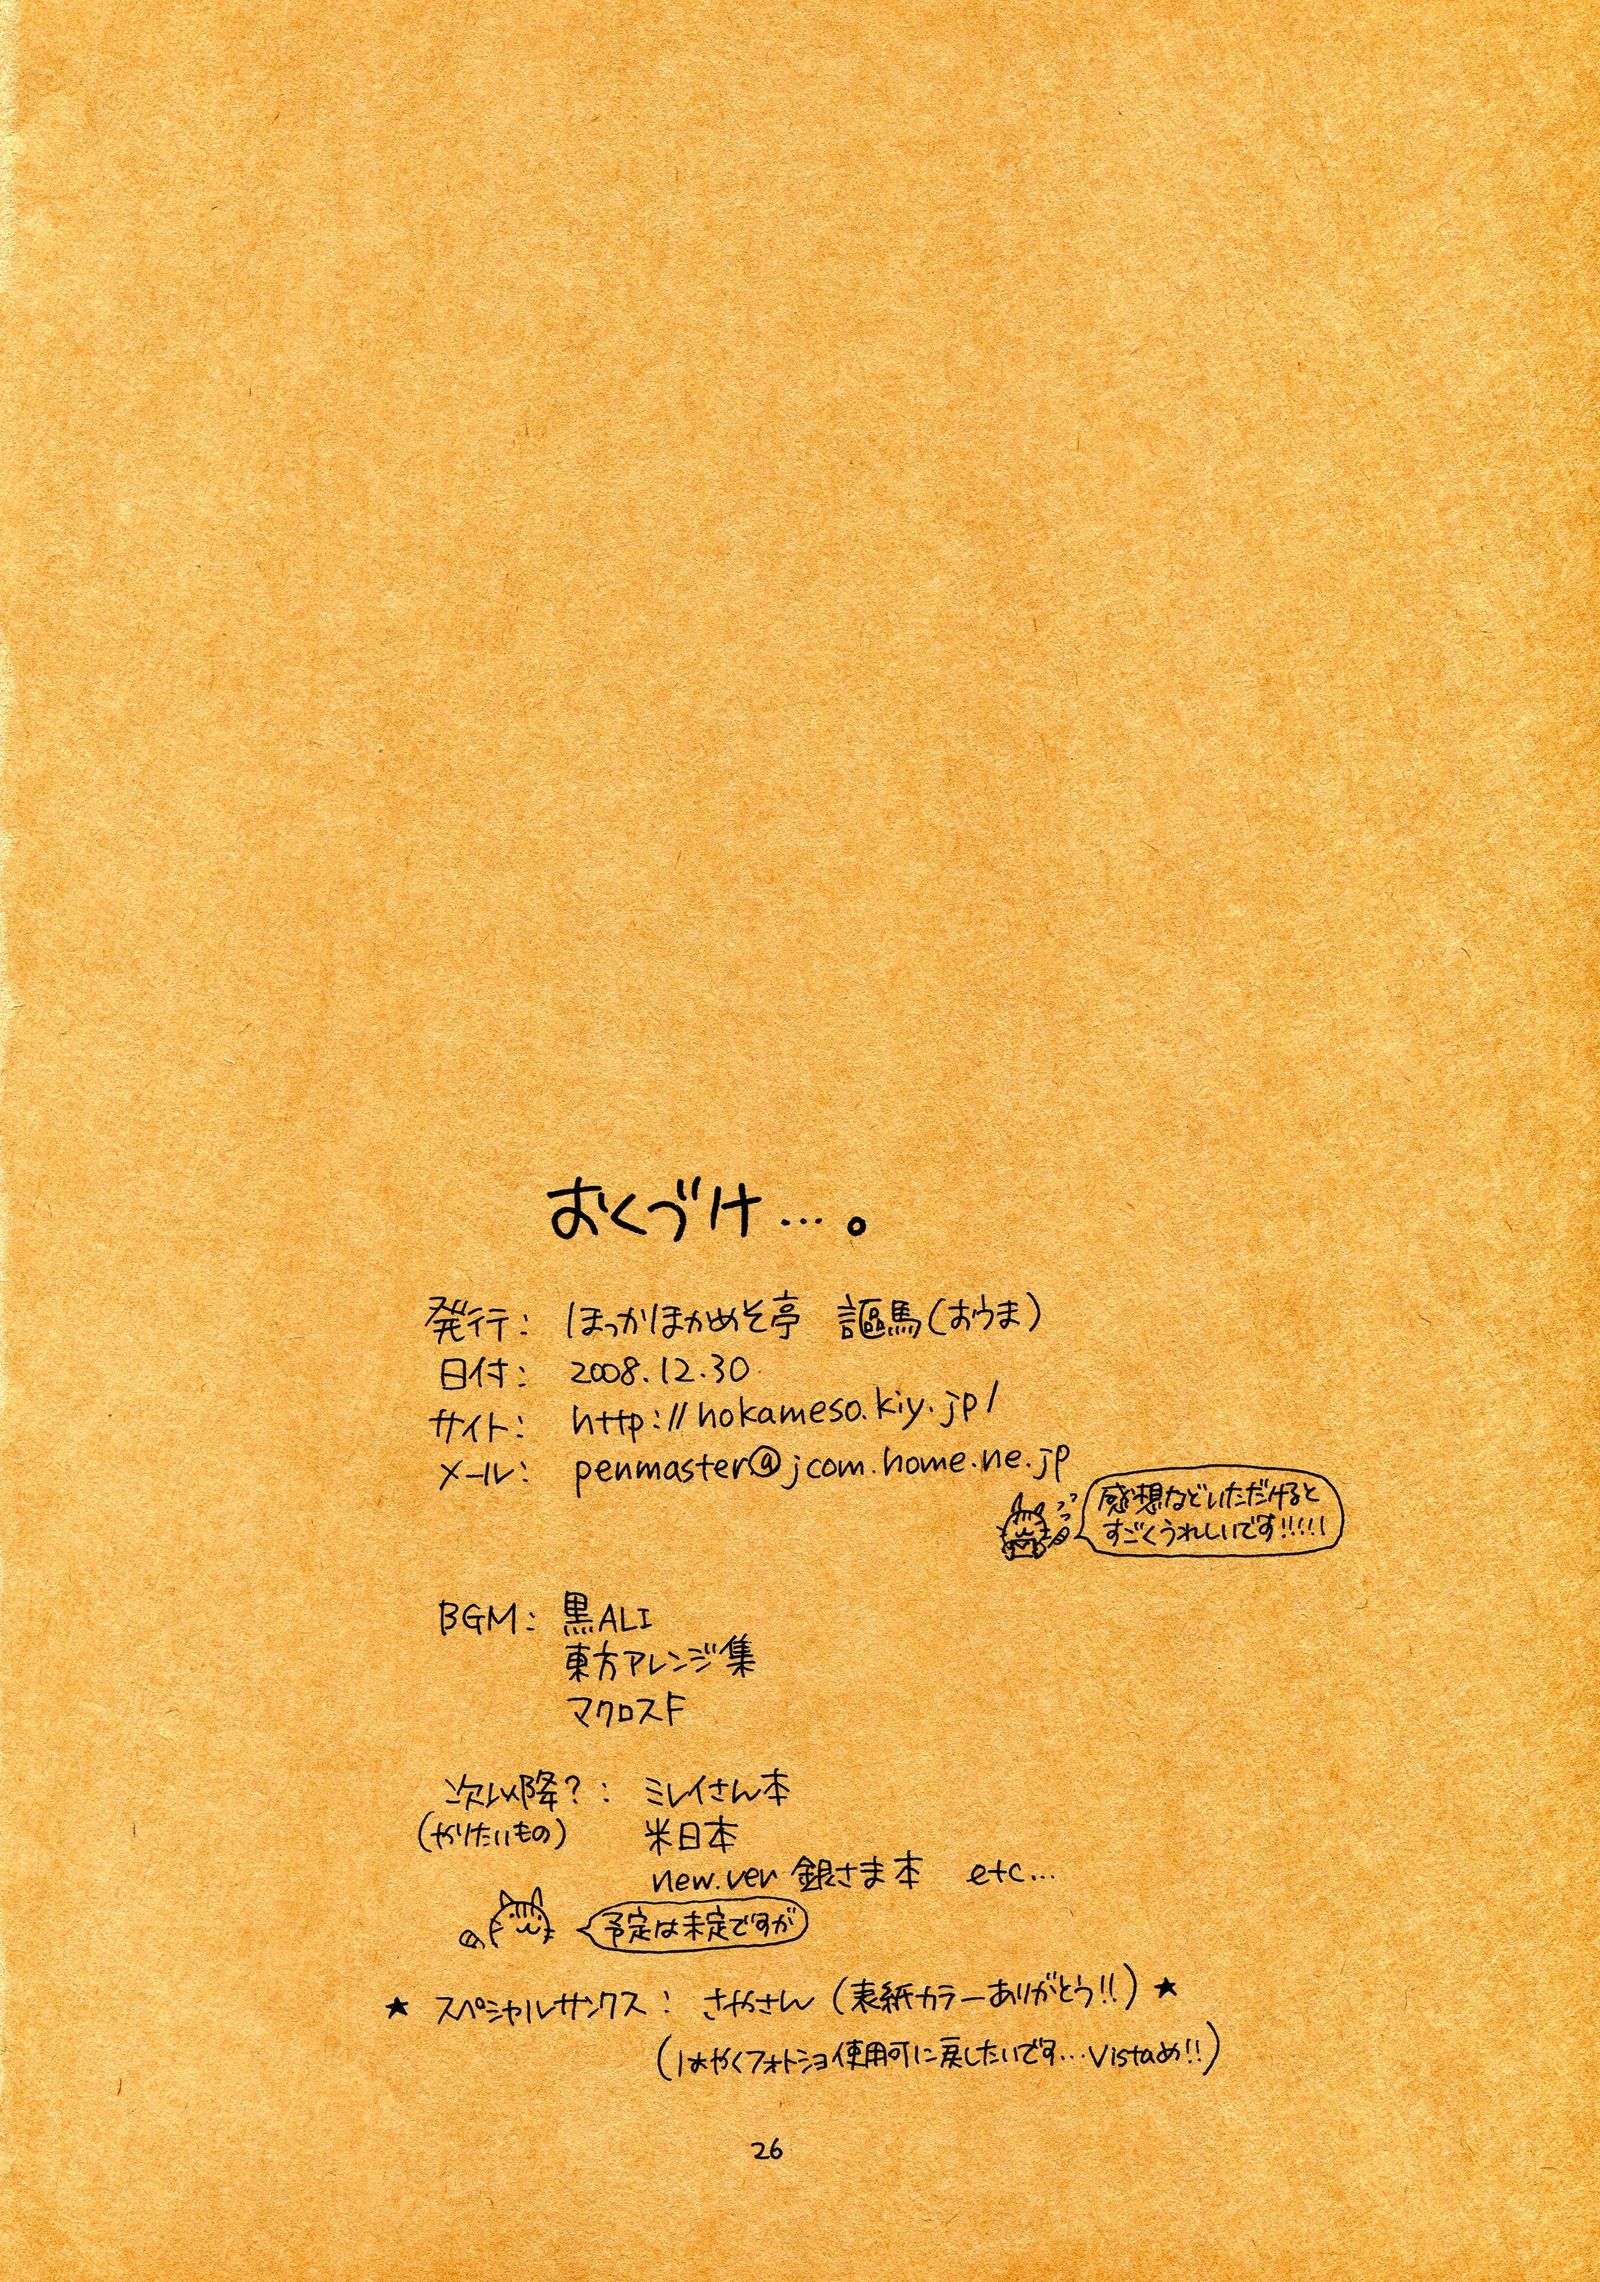 おくづけ…。
発行: ほっかほかめそ亭 謳馬(おうま)
日付: 2008.12.30
サイト: http://hokameso.kiy.jp/
メール: penmaster@jcom.home.ne.jp
感想などいただけると
すごくうれしいです!!!!!
BGM: 黒ALI
東方アレンジ集
マクロスF
次以降?: ミレイさん本
(やりたいもの) 米日本
new.ver 銀さま本 etc…
予定は未定ですが
★ スペシャルサンクス: さやさん(表紙カラーありがとう!!)★
(はやくフォトショ使用可に戻したいです…Vistaめ!!)
26